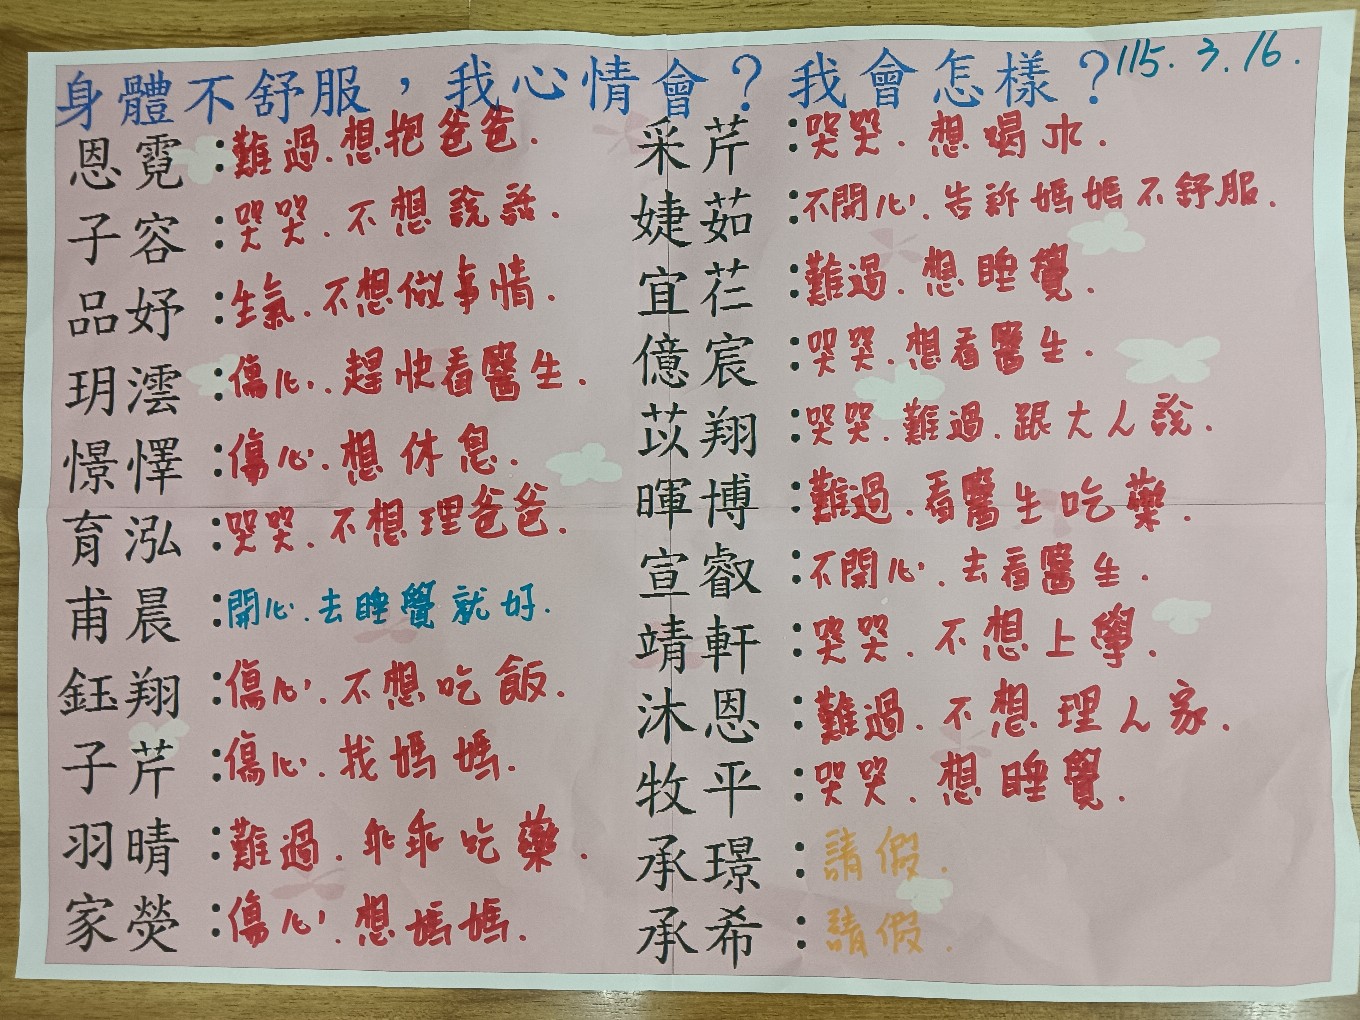 身體不舒服，我心情會？我會怎樣？115.3.16.
恩霓：難過.想抱爸爸.
子容：哭哭.不想說話.
品妤：生氣.不想做事情.
玥澐：傷心.趕快看醫生.
憬懌：傷心.想休息.
育泓：哭哭.不想理爸爸.
甫晨：開心.去睡覺就好.
鈺翔：傷心.不想吃飯.
子芹：傷心.找媽媽.
羽晴：難過.乖乖吃藥.
家熒：傷心.想媽媽.
采芹：哭哭.想喝水.
婕茹：不開心.告訴媽媽不舒服.
宜芢：難過.想睡覺.
億宸：哭哭.想看醫生.
苡翔：哭哭.難過.跟大人說.
暉博：難過.看醫生吃藥.
宣叡：不開心.去看醫生.
靖軒：哭哭.不想上學.
沐恩：難過.不想理人家.
牧平：哭哭.想睡覺.
承璟：請假.
承希：請假.